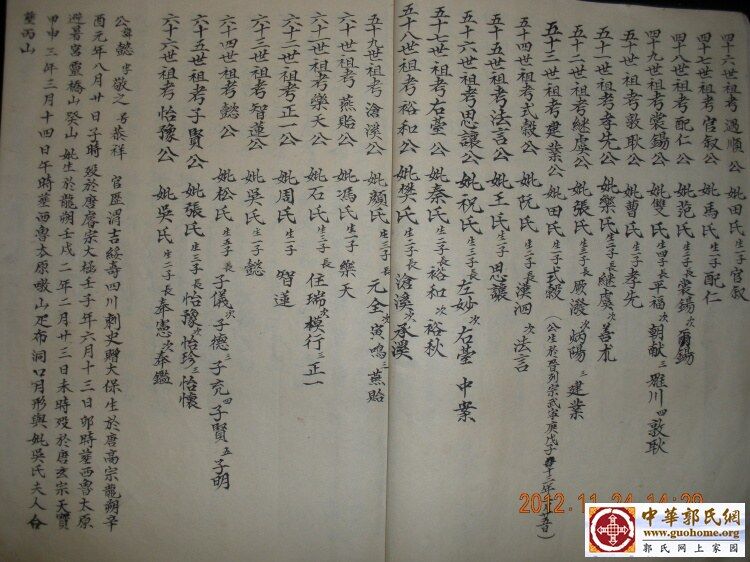 四十六世祖考 遇順公 妣田氏 生一子 官叙
四十七世祖考 官叙公 妣馬氏 生一子 配仁
四十八世祖考 配仁公 妣范氏 生二子 長 裳錫 次 爾錫
四十九世祖考 裳錫公 妣雙氏 生四子 長 平福 次 朝献 三 堰川 四 敦耿
五十世祖考 敦耿公 妣曹氏 生一子 孝先
五十一世祖考 孝先公 妣欒氏 生二子 長 継虞 次 善朮
五十二世祖考 継虞公 妣張氏 生三子 長 厥潑 次 炳陽 三 建業
五十三世祖考 建業公 妣田氏 生一子 式穀 (公生於晉列宗武寧庚戊子
五十四世祖考 式穀公 妣阮氏 生二子 長 漢泗 次 法言
五十五世祖考 法言公 妣王氏 生一子 思讓
五十六世祖考 思讓公 妣祝氏 生二子 長 左妙 次 右荃 中案
五十七世祖考 右荃公 妣秦氏 生二子 長 裕和 次 裕秋
五十八世祖考 裕和公 妣樊氏 生二子 長 滄溪 次 承漠
五十九世祖考 滄溪公 妣顔氏 生三子 長 元全 次 寅鳴 三 燕貽
六十世祖考 燕貽公 妣馮氏 生一子 樂天
六十一世祖考 樂天公 妣石氏 生三子 長 住瑞 次 模行 三 正一
六十二世祖考 正一公 妣周氏 生一子 智蓮
六十三世祖考 智蓮公 妣吳氏 生一子 懿
六十四世祖考 懿公 妣松氏 生五子 長 子儀 次 子德 三 子充 四 子賢 五 子明
六十五世祖考 子賢公 妣張氏 生三子 長 怡豫 次 怡珍 三 怡懷
六十六世祖考 怡豫公 妣吳氏 生二子 長 奉憲 次 奉鑑
公諱懿 字敬之 号恭祥 官歷渭吉綏奇四川刺史贈大保生於唐高宗龍朔辛
酉元年八月廿日子時 殁於唐睿宗太極壬子年六月十三日卯時塟西魯太原
避暑宫靈橋山癸山 妣生於龍朔壬戌二年二月廿三日未時殁於唐玄宗天寶
甲申三年三月十四日午時塟西魯太原墩山疋布洞口月形與妣吳氏夫人合
塟丙山
2012.11.24 14:29
中華郭氏網
www.guohome.org
郭氏网上家园